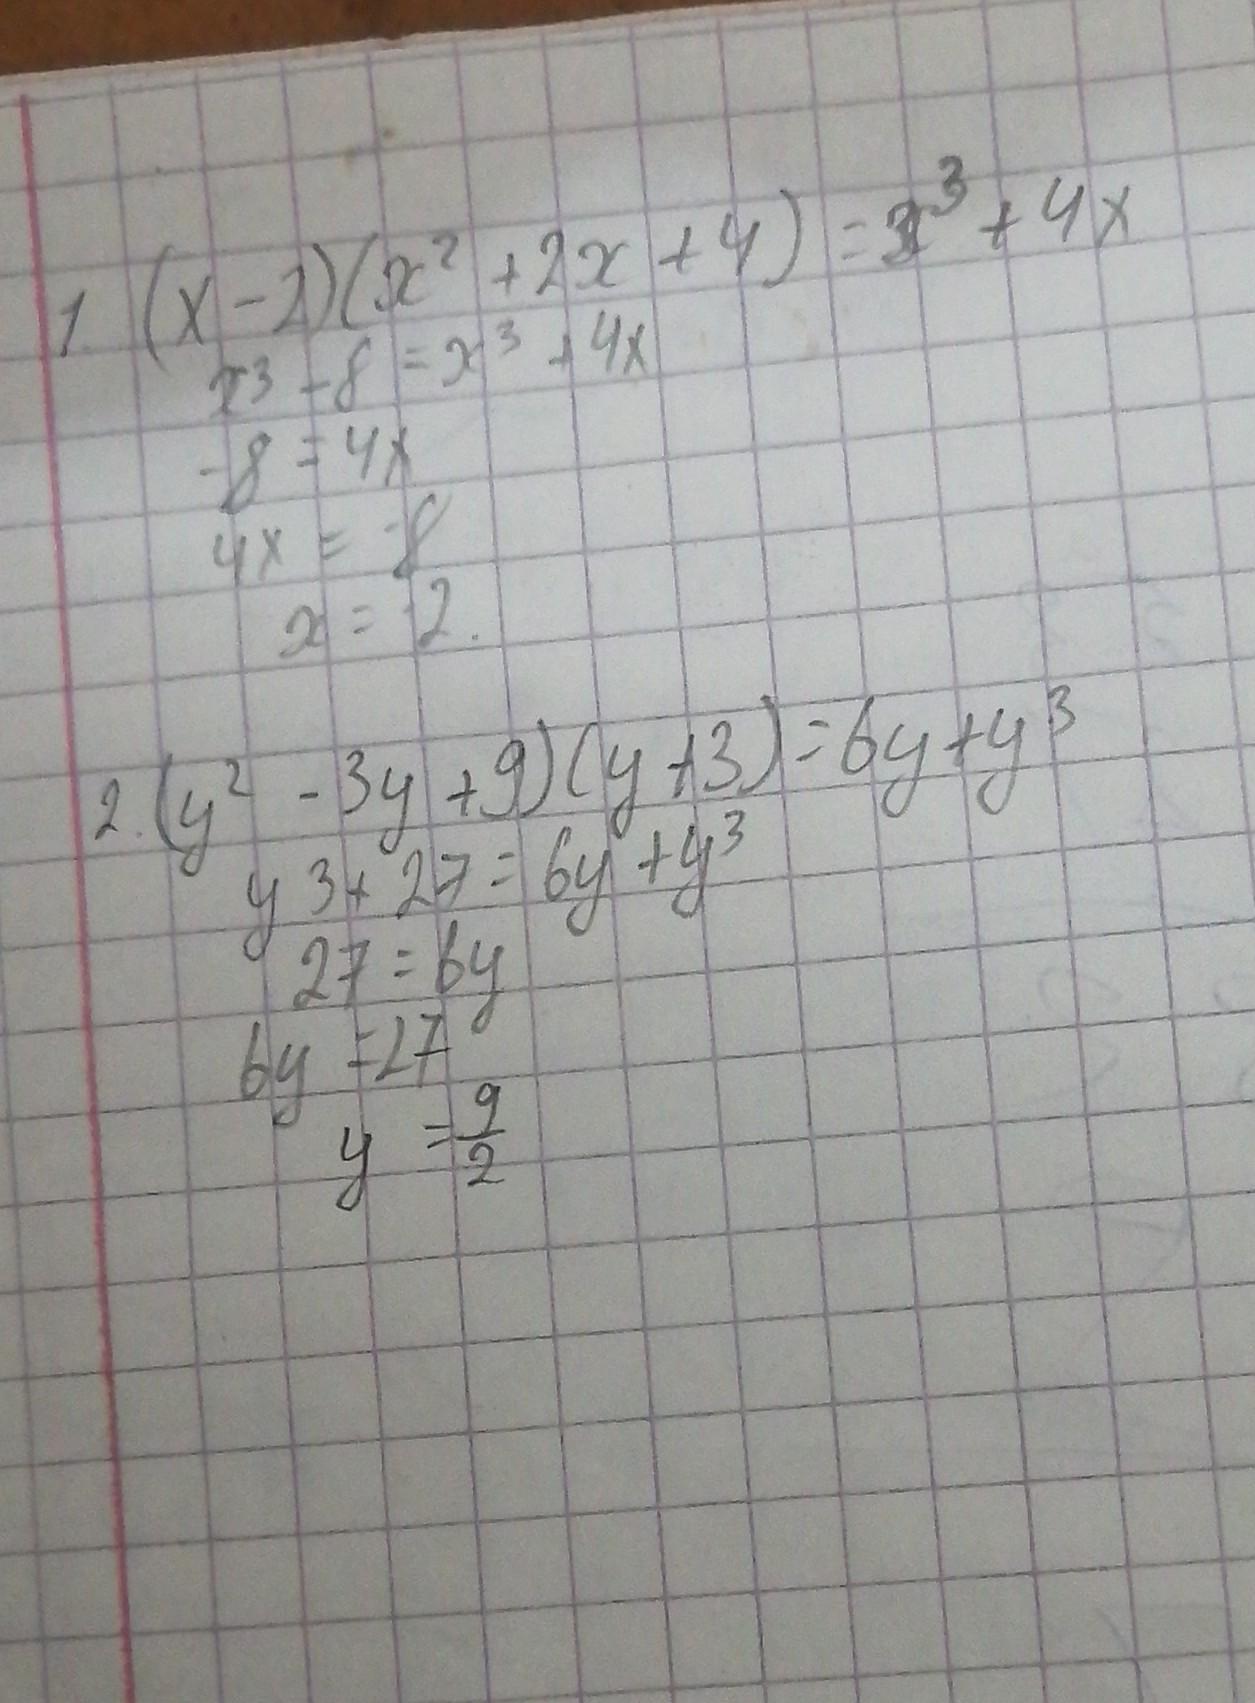 1. (x-2)(x² +2x +4) = x³ + 4x
x³ - 8 = x³ + 4x
-8 = 4x
4x = -8
x = -2.
2. (y² - 3y +9)(y+3)=6y+y³
y3+ 27 = 6y +y³
27 = 6y
6y =27
y = 9/2